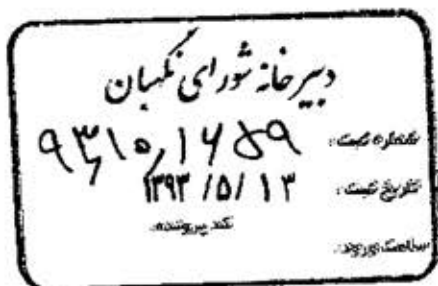 دبیرخانه شورای نگهبان
شماره ثبت: ۹۳/۱۰۱۶۵۹
تاریخ ثبت: ۱۳۹۳/۵/۱۳
کد پرونده:
ساعت ورود: